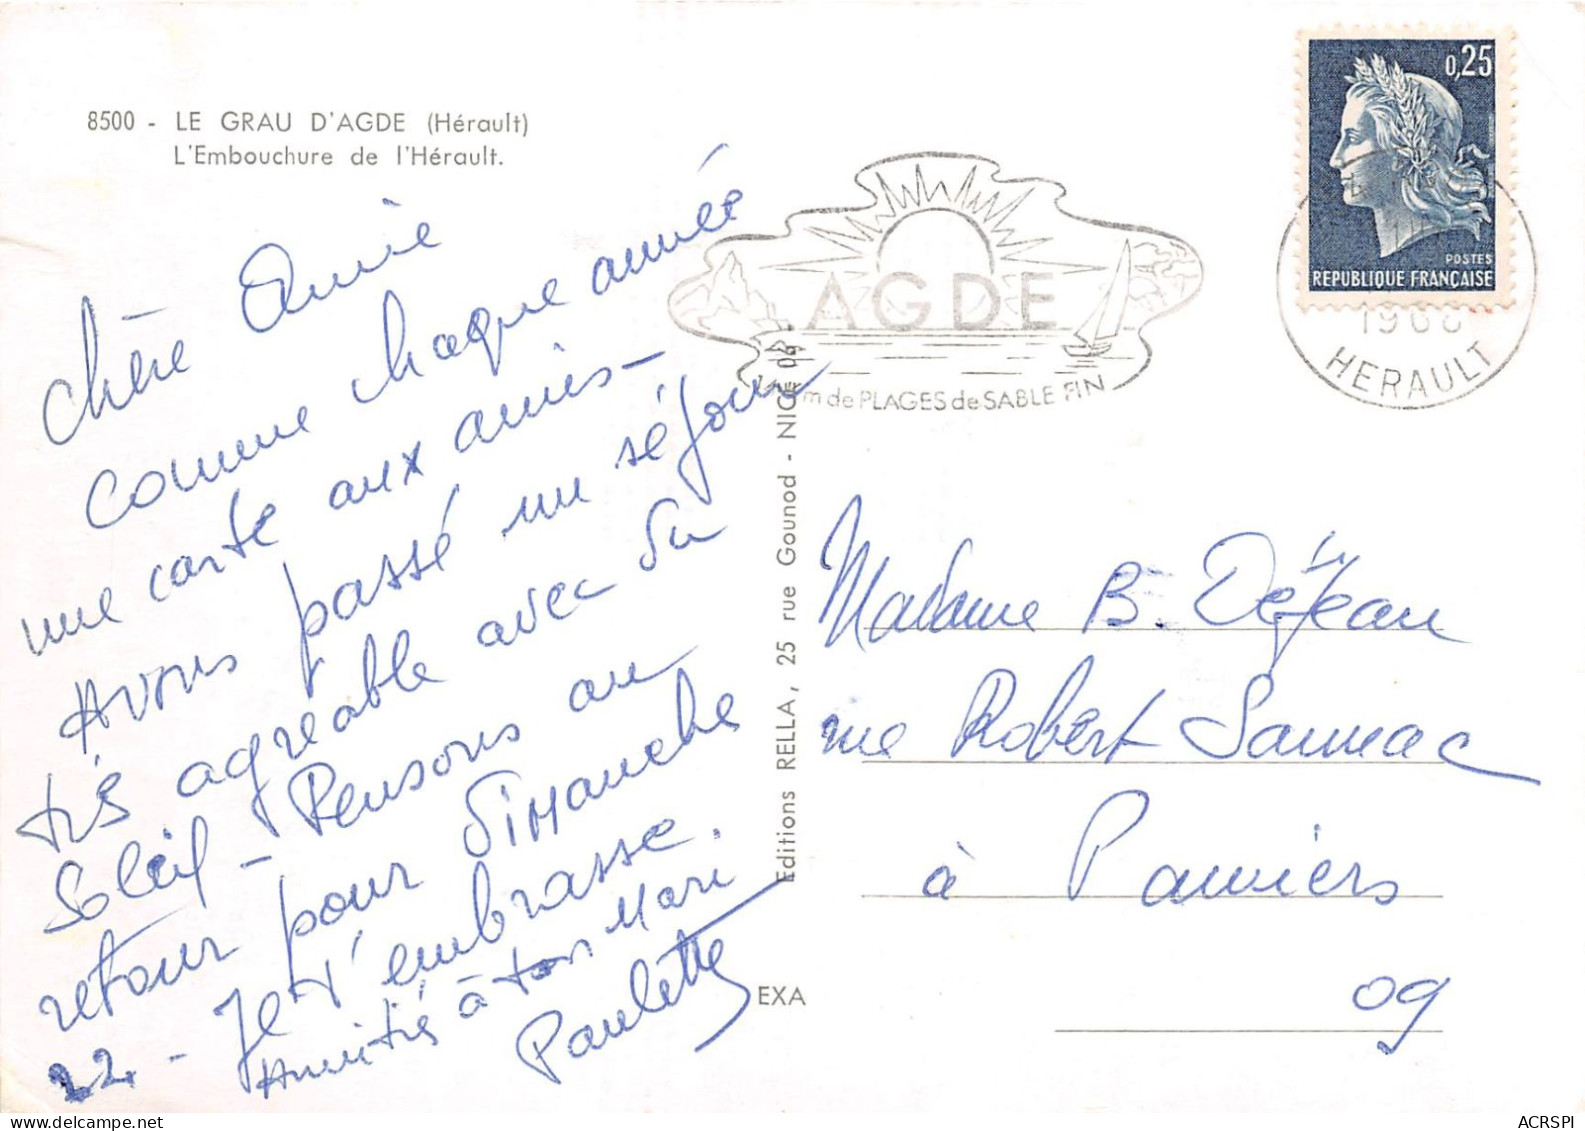 8500 - LE GRAU D'AGDE (Hérault)
L'Embouchure de l'Hérault.
Chère Amie
comme chaque année
une carte aux amies -
Avons passé un séjour
très agréable avec du
Soleil - Pensons au
retour pour dimanche
22 - Je t'embrasse.
Amitiés à ton Mari
Paulette
Editions RELLA, 25 rue Gounod - NICE 06
EXA
AGDE
m de PLAGES de SABLE FIN
0,25
POSTES
REPUBLIQUE FRANÇAISE
HERAULT
Madame B. Déjean
rue Robert Saunac
à Pamiers
09
ACRSPI